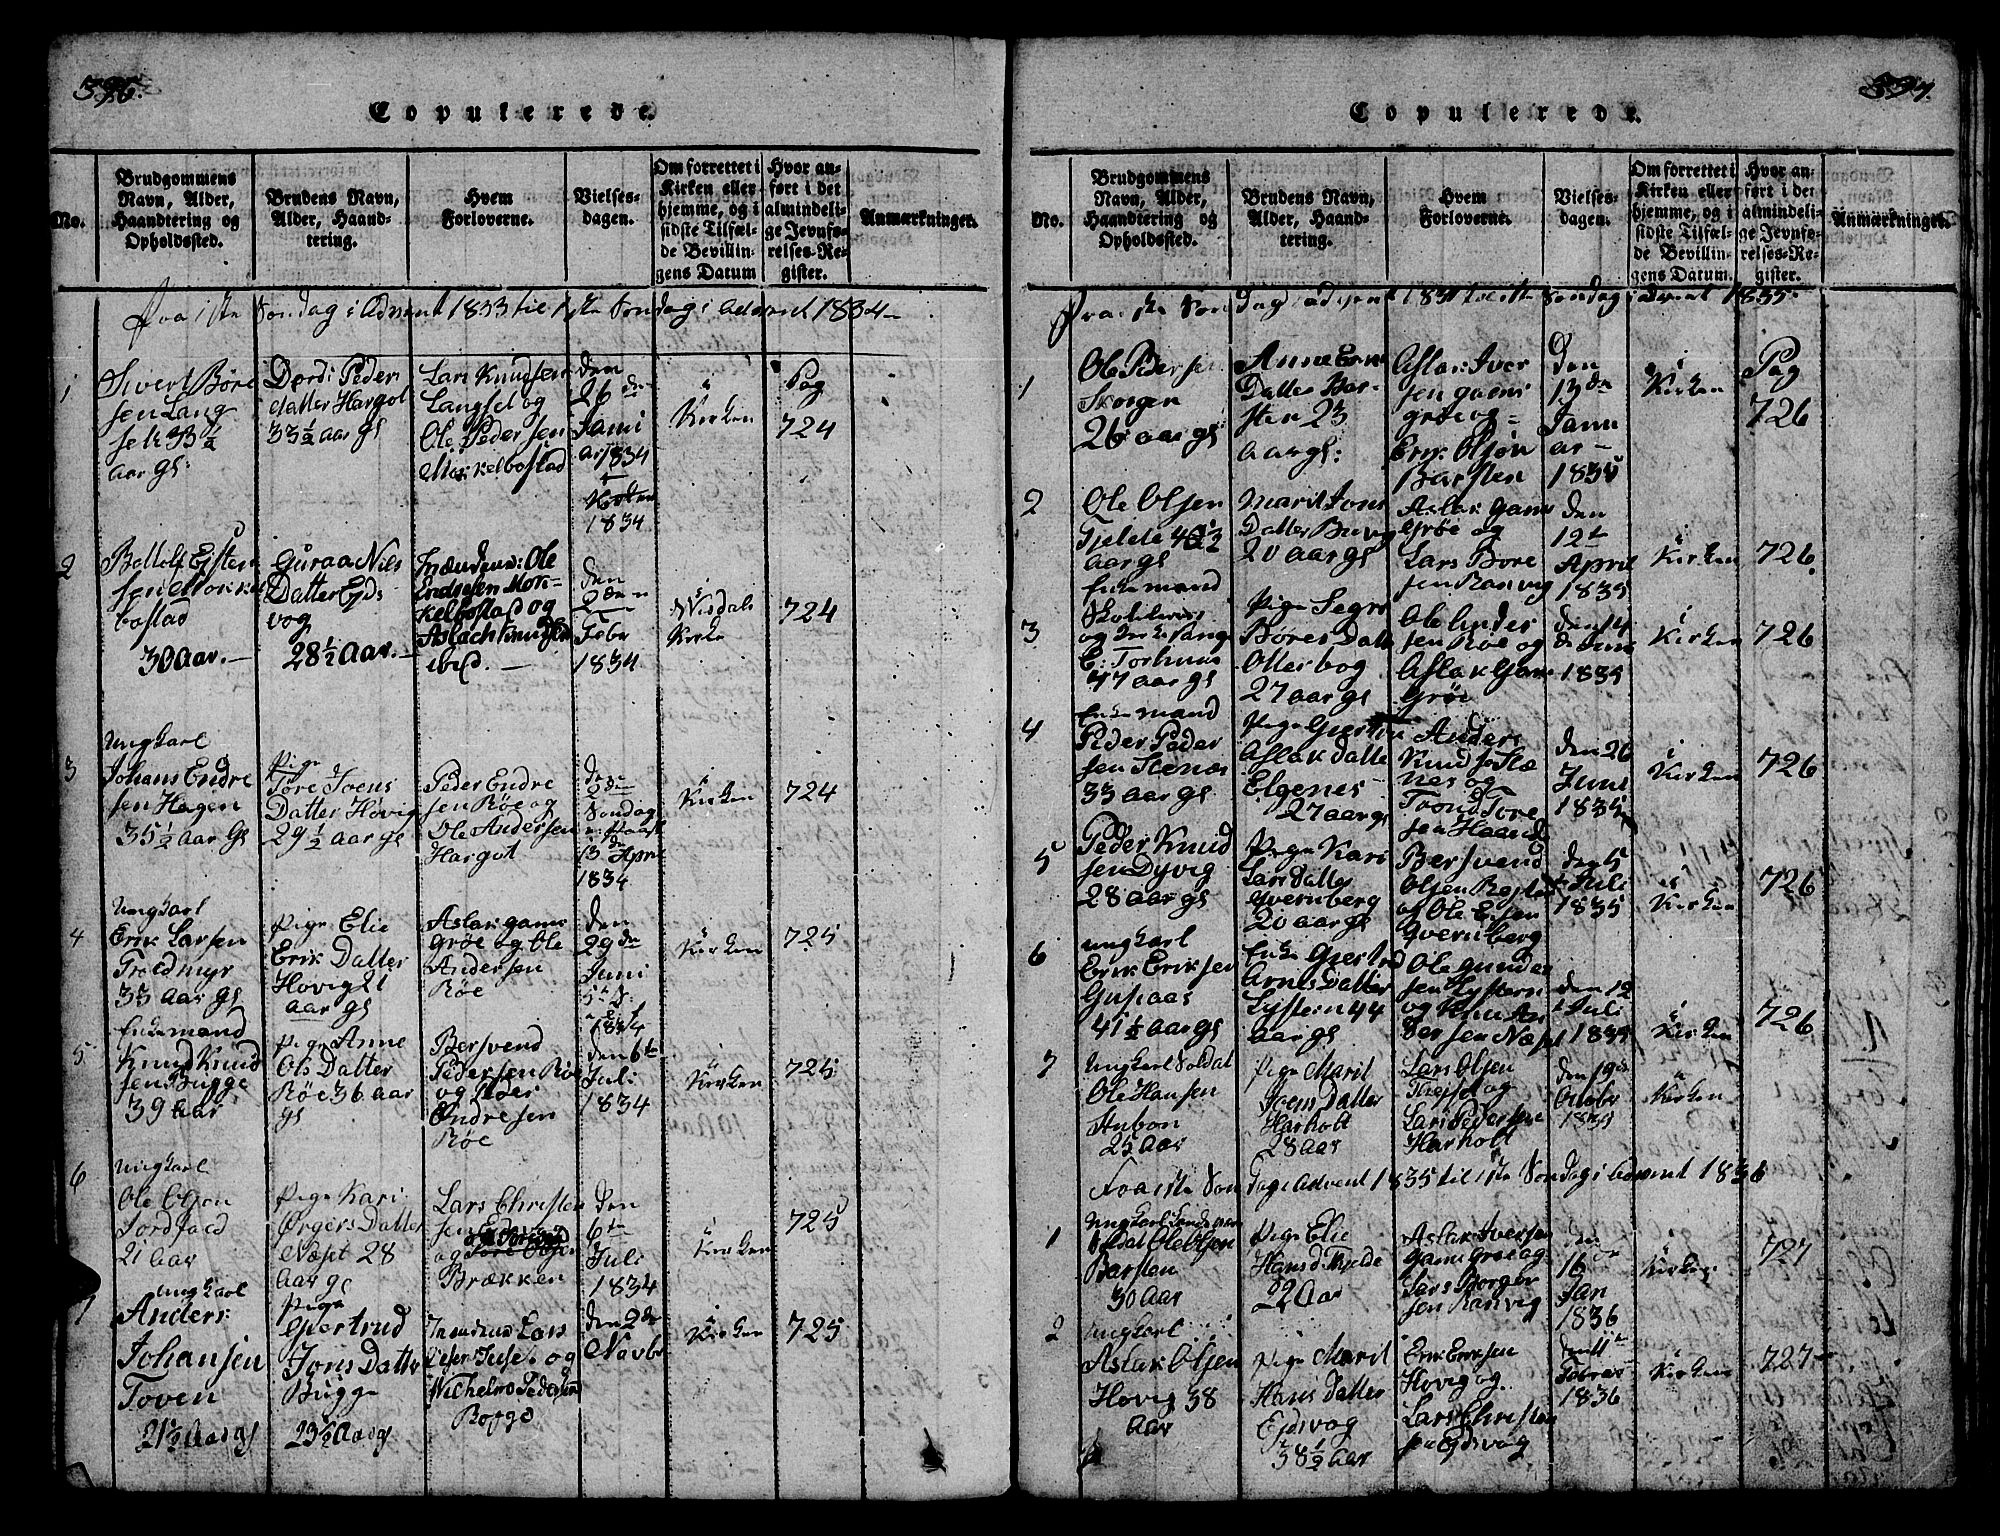 396.
Copulerede.
No.
Brudgommens Navn, Alder, Haandtering og Opholdssted.
Brudens Navn, Alder, Haandtering.
Hvem Forloverne.
Vielsesdagen.
Om forrettet i Kirken eller hjemme, og i sidste Tilfælde Bevillingens Datum
Hvor anført i det almindelige Jevnførelses-Register.
Anmærkninger.
Fra 1ste Søndag i Advent 1833 til 1ste Søndag i Advent 1834
1
Sivert Børe
sen Lang
set 33½
aar gl:
Dordi Peders
datter Hargot
33½ aar gl
Lars Knudsen
Langset og
Ole Pedersen
Merkelbostad
den
26de
Janu
ar 1834
1834
Kirken
Pag
724
2
Bottolf Eisten
sen
bostad
30 Aar.
Guraa Nils
Datter Eids
vog
28½ Aar.
Frænderne: Ole
Endresen Mor-
kelbostad og
Aslach Knudsen
ibid.
den
2den
Febr
1834
Nisdals
Kirke
724
3
Ungkarl
Johans Endre
sen Hagen
35½ Aar Gl
Pige
Tore Joens
Datter Høvig
29½ aar gl
Peder Endre
sen Røe og
Ole Andersen
Hargot
den
2den
Søndag
e: Paask
13de April
1834
Kirken
724
4
Ungkarl
Erik Larsen
Troldmyr
33 Aar gl
Pige Elie
Erik Datter
Hovig 21
aar gl
Aslak gams
Grøe og Ole
Andersen
Røe
den
29de
Juni
1834
Kirken
725
5
Enkemand
Knud Knud
sen Bugge
39 Aar
Pige Anne
Ols Datter
Røe 36 aar
gl
Bersvend
Pedersen Røe
og Peder
Endresen
Røe
den 6te
Juli
1834
Kirken
725
6
Ungkarl
Ole Olsen
21 Aar
Pige Kari
Ørgers Datter
Næset 28
Aar gl
Lars Christen
sen
og Tore Olsen
Brækken
den
6te
Juli
1834
Kirken
725
7
Ungkarl
Anders
Johansen
Toven
21½ Aar gl
Pige
Gjertrud
Jons Datter
Bugge
23½ Aar gl
Frænderne Lars
og
Vilhelm Pedersen
den 2de
Novbr
Kirken
725
397.
Copulerede.
No.
Brudgommens Navn, Alder, Haandtering og Opholdssted.
Brudens Navn, Alder, Haandtering.
Hvem Forloverne.
Vielsesdagen.
Om forrettet i Kirken eller hjemme, og i sidste Tilfælde Bevillingens Datum.
Hvor anført i det almindelige Jevnførelses-Register.
Anmærkninger.
Fra 1ste Søndag i Advent 1834 til 1ste Søndag i Advent 1835
1
Ole Pedersen
Skorgen
26 aar gl
Anne Erik
Datter Bar-
sten 23
aar gl:
Aslak Iver
sen gams
grøe og
Erik Olsøn
Barsten
Den
13de
Janu
ar
1835
Kirken
Pag
726
2
Ole Olsen
Tjelde
aar gl
Enkemand
Marit Jons
Datter Buvig
20 aar gl
Aslak Gams
Grøe og
Lars Børe
sen Ranvig
den
12te
April
1835
Kirken
726.
3
og Kirkesanger
E: Torhuus
47 aar gl
Pige Segri
Børes Datter
Otterbog
27 aar gl
Ole Andes
sen Røe og
Aslak Gams
Grøe
den 14
de Juni
1835
Kirken
726
4
Enkemand
Peder Peder
sen Stenæs
33 aar gl
Pige Gjertru
Aslak datter
Elgenes
27 aar gl
Anders
Knudsø Ste
nes og
Trond Tore
sen Haand
den 26
Juni
1835
Kirken
726
5
Peder Knud
sen Dyvig
28 aar gl
Pige Kari
Lars datter
Gvernberg
20 aar gl
Bersvend
Olsen
og Ole Ersen
Gvernberg
den 5
Juli
1835
Kirken
726
6
Ungkarl
Erik Eriksen
Gusiaas
41½ aar gl
Enke Gjertrud
Arnes Datter
Lystern 44
aar gl
Ole Gunder
sen Lystern
og Knu An
dersen Næset
den 12
Juli
1835
Kirken
726
7
Ungkarl Soldat
Ole Hansen
Stubøn
25 Aar
Pige Marit
Joens Datter
Harholt
28 aar
Lars Olsen
og
Lars Pedersen
Harholt
den
Octobr
1835
Kirken
Fra 1ste Søndag i Advent 1835 til 1ste Søndag i Advent 1836
1
Ungkarl
Soldat Ole Olsen
Barsten
30 Aar
Pige Elie
Hans d Tjelde
22 Aar
Aslak Iversen
Gams Grøe og
Lars Børger
sen Ranvig
den
16
Jan
1836
Kirken
727
2
Ungkarl
Aslak Olsen
Hovig 38
Aar
Pige Marit
Hans Datter
Ejdsvog
38½ Aar
Erik Eriksen
Hovig og
Lars Christen
sen Eidsvog
Februar
1836
Kirken
727